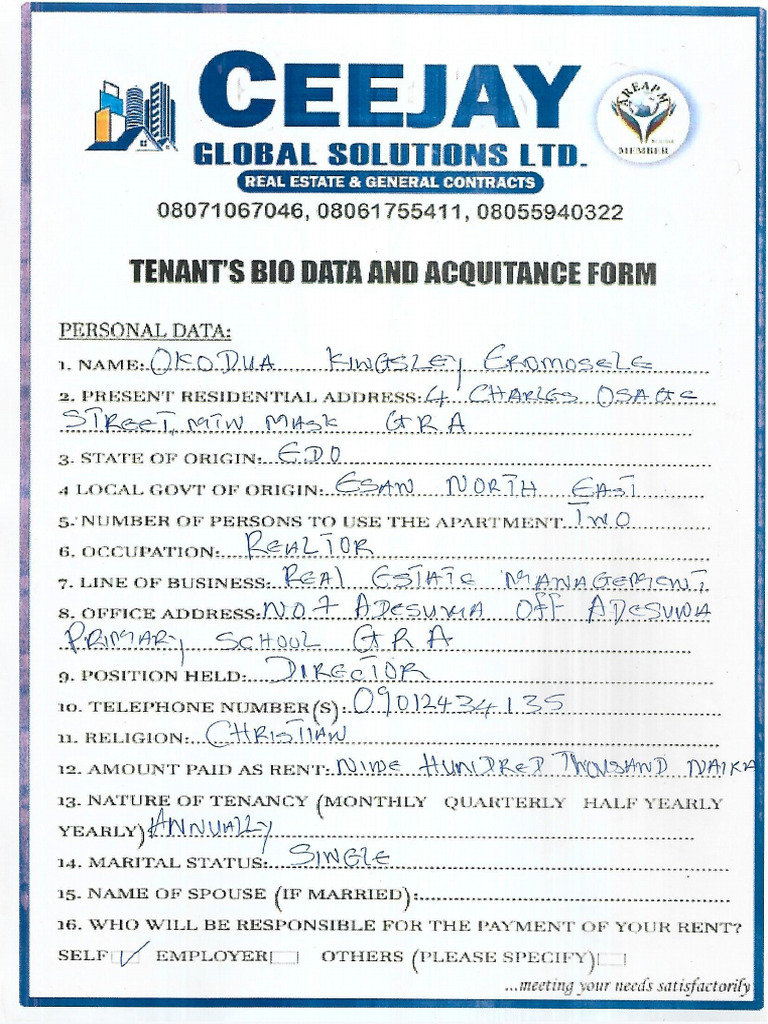 CEEJAY
GLOBAL SOLUTIONS LTD.
REAL ESTATE & GENERAL CONTRACTS
AREAPM
MEMBER
08071067046, 08061755411, 08055940322
TENANT'S BIO DATA AND ACQUITANCE FORM
PERSONAL DATA:
1. NAME: OKODUA KINGSLEY EROMOSELE
2. PRESENT RESIDENTIAL ADDRESS: 4 CHARLES OSAGE
STREET, MTN MASK GRA
3. STATE OF ORIGIN: EDO
4 LOCAL GOVT OF ORIGIN: ESAN NORTH EAST
5. NUMBER OF PERSONS TO USE THE APARTMENT. TWO
6. OCCUPATION: REALTOR
7. LINE OF BUSINESS: REAl ESTATE MANAGEMENT
8. OFFICE ADDRESS: NO 7 ADESUWA Off ADESUWA
PRIMARY SCHOOL GRA
9. POSITION HELD: DIRECTOR
10. TELEPHONE NUMBER(S): 09012434135
11. RELIGION: CHRISTIAN
12. AMOUNT PAID AS RENT: NINE HUNDRED THOUSAND NAIRA
13. NATURE OF TENANCY (MONTHLY QUARTERLY HALF YEARLY
YEARLY) ANNUALLY
14. MARITAL STATUS: SINGLE
15. NAME OF SPOUSE (IF MARRIED):
16. WHO WILL BE RESPONSIBLE FOR THE PAYMENT OF YOUR RENT?
SELF ✓ EMPLOYER OTHERS (PLEASE SPECIFY)
...meeting your needs satisfactorily